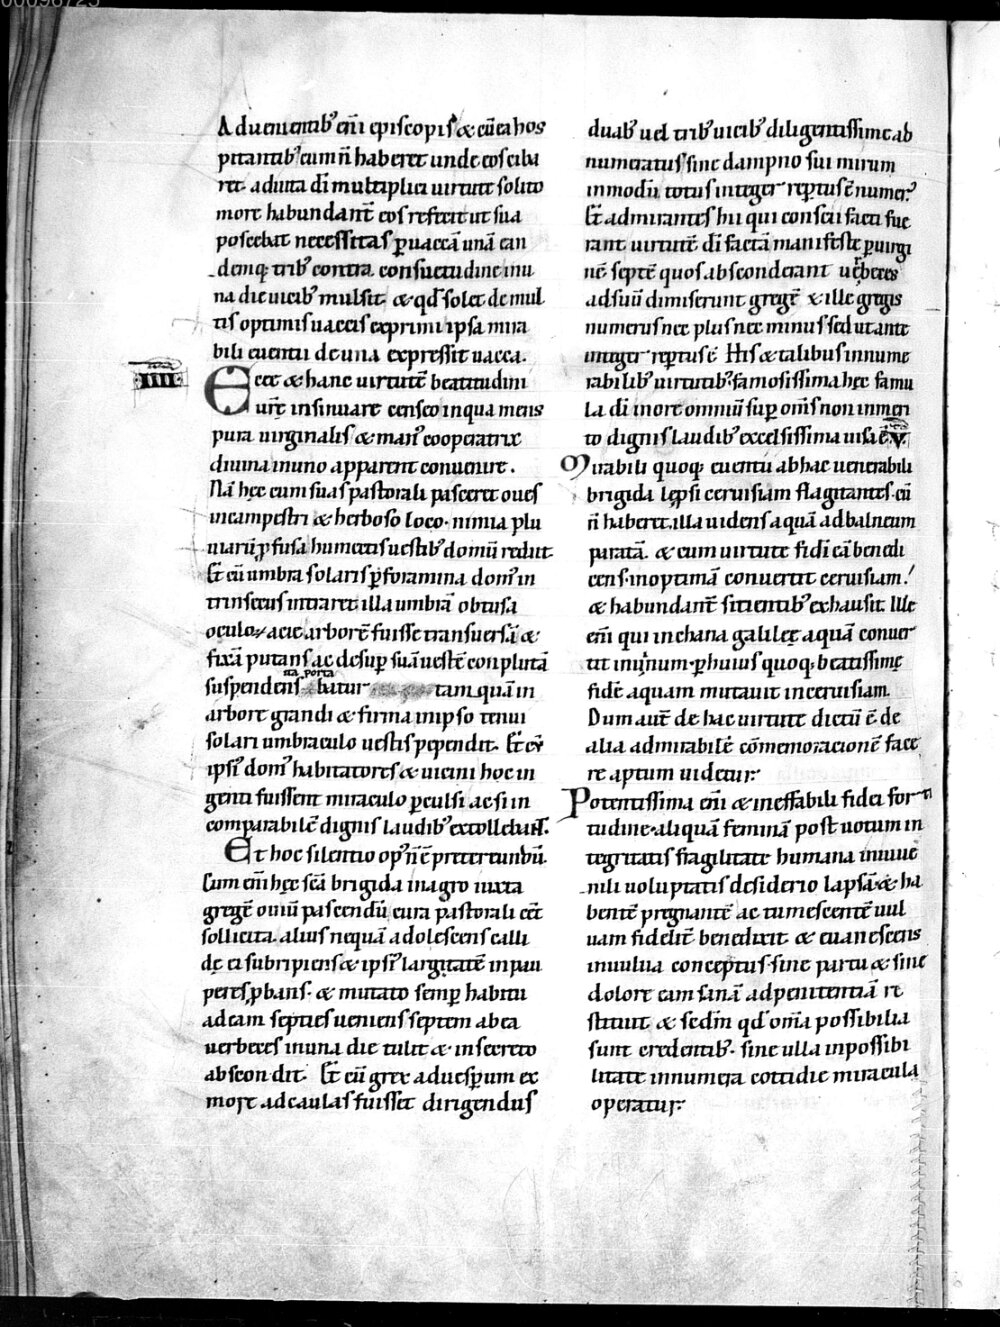 00098725
Aduenientib' eni͞ episcopis & cu͞ ea hos
pitantib' cum n͞ haberet unde eos ciba
ret. adiuta di͞ multiplici uirtute solito
more habundant͞ eos refecit ut sua
poscebat necessitas p̱ uacca͞ una͞ ean
demq; trib' contra consuetudine inu
na die uicib' mulsit. & qd͞ solet de mul
tis optimis uaccis exprimi ipsa mira
bili euentu de una expressit uacca.
IIII
Ecce & hanc uirtute͞ beatitudini
ur͞e insinuare censeo in qua mens
pura uirginalis & man' cooperatrix
diuina in uno apparent conuenire.
Na͞ hęc cum suas pastorali pasceret oues
in campestri & herboso loco. nimia plu
uiaru͞ ꝓfusa humectis uestib' domu͞ rediit.
Et cu͞ umbra solaris p̱ foramina dom' in
trinsecus intraret illa umbra͞ obtusa
oculoꝝ acie arbore͞ fuisse transuersa͞ &
fixa͞ putans ac desup̱ sua͞ ueste͞ conpluta͞
na porta
suspendens batur tamquam in
arbore grandi & firma in ipso tenui
solari umbraculo uestis pependit. Et cu͞
ipsi' dom' habitatores & uicini hoc in
genti fuissent miraculo p̱culsi ac si in
comparabile͞ dignis laudib' extollebant.
Et hoc silentio op' n͞ e͞ pretereundu͞.
Cum eni͞ hęc sc͞a brigida in agro iuxta
grege͞ ouiu͞ pascendu͞ cura pastorali e͞et
sollicita. alius nequa͞ adolescens calli
de ei subripiens & ipsi' largitate͞ in pau
peres ꝓbans. & mutato semp̱ habitu
ad eam septies ueniens septem ab ea
uerbeces in una die tulit & in secreto
abscondit. Et cu͞ grex ad uesp̱um ex
more ad caulas fuisset dirigendus
duab' uel trib' uicib' diligentissime ab
numeratus sine dampno sui mirum
in modu͞ totus integer rep̱tus e͞ numer'.
Et admirantes hii qui conscii facti fue
rant uirtute͞ di͞ facta͞ manifeste p̱ uirgi
ne͞ septe͞ quos absconderant uerbeces
ad suu͞ dimiserunt grege͞ & ille gregis
numerus nec plus nec minus sed ut ante
integer rep̱tus e͞. His & talibus innume
rabilib' uirtutib' famosissima hęc famu
la di͞ in ore omniu͞ sup̱ om͞s non inmeri
to dignis laudib' excelsissima uisa e͞. V
Mirabili quoq; euentu ab hac uenerabili
brigida lep̱si ceruisiam flagitantes. cu͞
n͞ haberet. illa uidens aqua͞ ad balneum
parata͞. & cum uirtute fidei͞ ea͞ benedi
cens. in optima͞ conuertit ceruisiam.
& habundant͞ sitientib' exhausit. Ille
eni͞ qui in chana galileę aqua͞ conuer
tit in uinum. p̱ huius quoq; beatissimę
fide͞ aquam mutauit in ceruisiam.
Dum aut͞ de hac uirtute dictu͞ e͞. de
alia admirabile͞ co͞memoracione͞ face
re aptum uidetur.
Potentissima eni͞ & ineffabili fidei forti
tudine. aliqua͞ femina͞ post uotum in
tegritatis fragilitate humana in iuue
nili uoluptatis desiderio lapsa͞ & ha
bente͞ pregnante͞ ac tumescente͞ uul
uam fidelit͞ benedixit. & euanescens
in uulua conceptus. sine partu & sine
dolore eam sana͞ ad penitentia͞ re
stituit. & sedm͞ qd͞ om͞a possibilia
sunt credentib'. sine ulla inpossibi
litate innumera cottidie miracula
operatur.